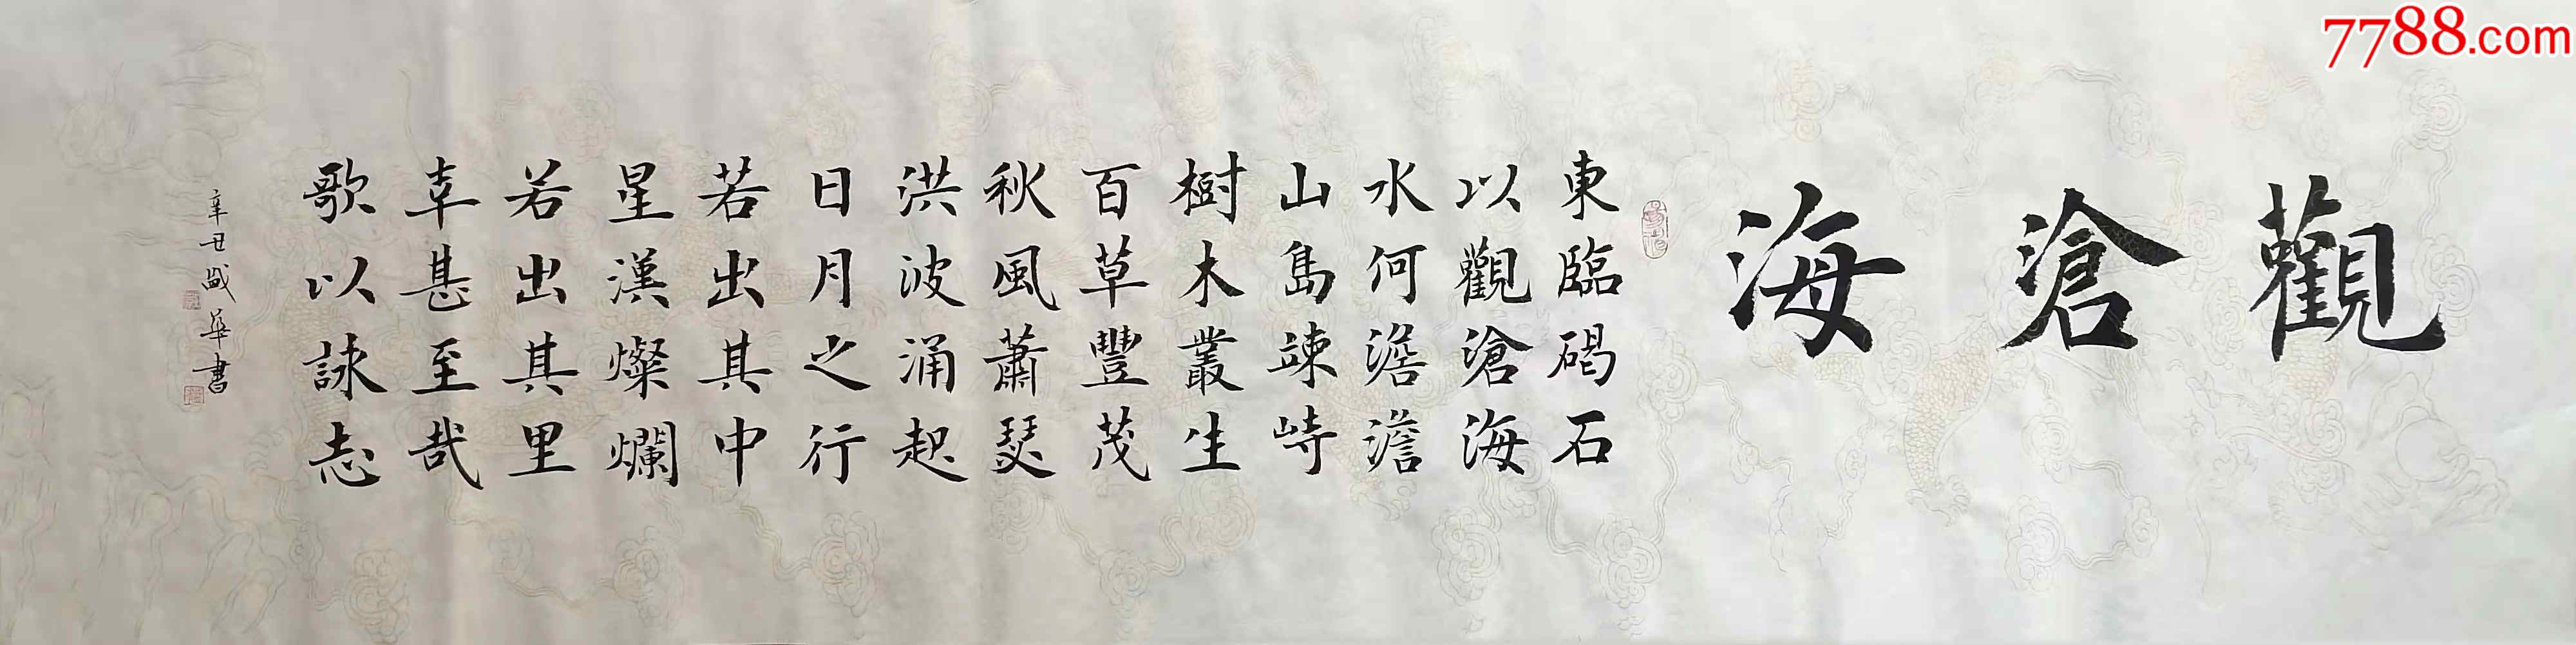 觀滄海
東臨碣石
以觀滄海
水何澹澹
山島竦峙
樹木叢生
百草豐茂
秋風蕭瑟
洪波涌起
日月之行
若出其中
星漢燦爛
若出其里
幸甚至哉
歌以詠志
辛丑盛華書
7788.com